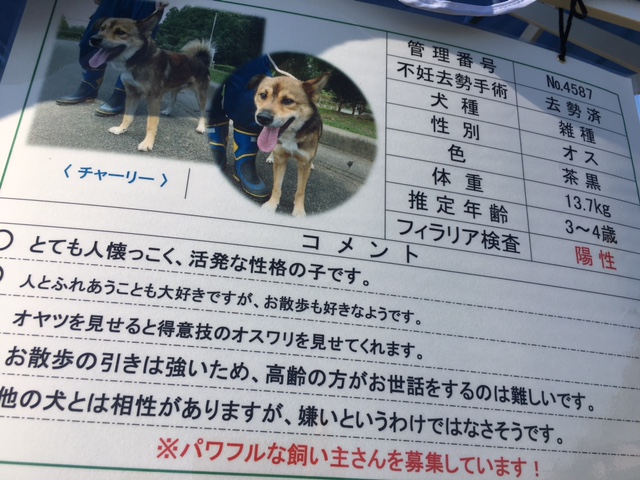 〈 チャーリー 〉
管理番号 No.4587
不妊去勢手術 去勢済
犬種 雑種
性別 オス
色 茶黒
体重 13.7kg
推定年齢 3~4歳
フィラリア検査 陽性
コメント
○ とても人懐っこく、活発な性格の子です。
人とふれあうことも大好きですが、お散歩も好きなようです。
オヤツを見せると得意技のオスワリを見せてくれます。
お散歩の引きは強いため、高齢の方がお世話をするのは難しいです。
他の犬とは相性がありますが、嫌いというわけではなさそうです。
※パワフルな飼い主さんを募集しています!